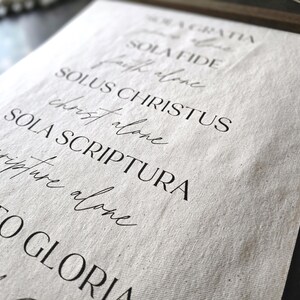 SOLA GRATIA
grace alone
SOLA FIDE
faith alone
SOLUS CHRISTUS
christ alone
SOLA SCRIPTURA
scripture alone
GLORIA